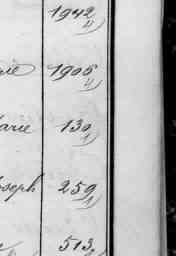 1942
4)
rie 1906
4)
Marie 130
1)
Joseph 259
1)
513